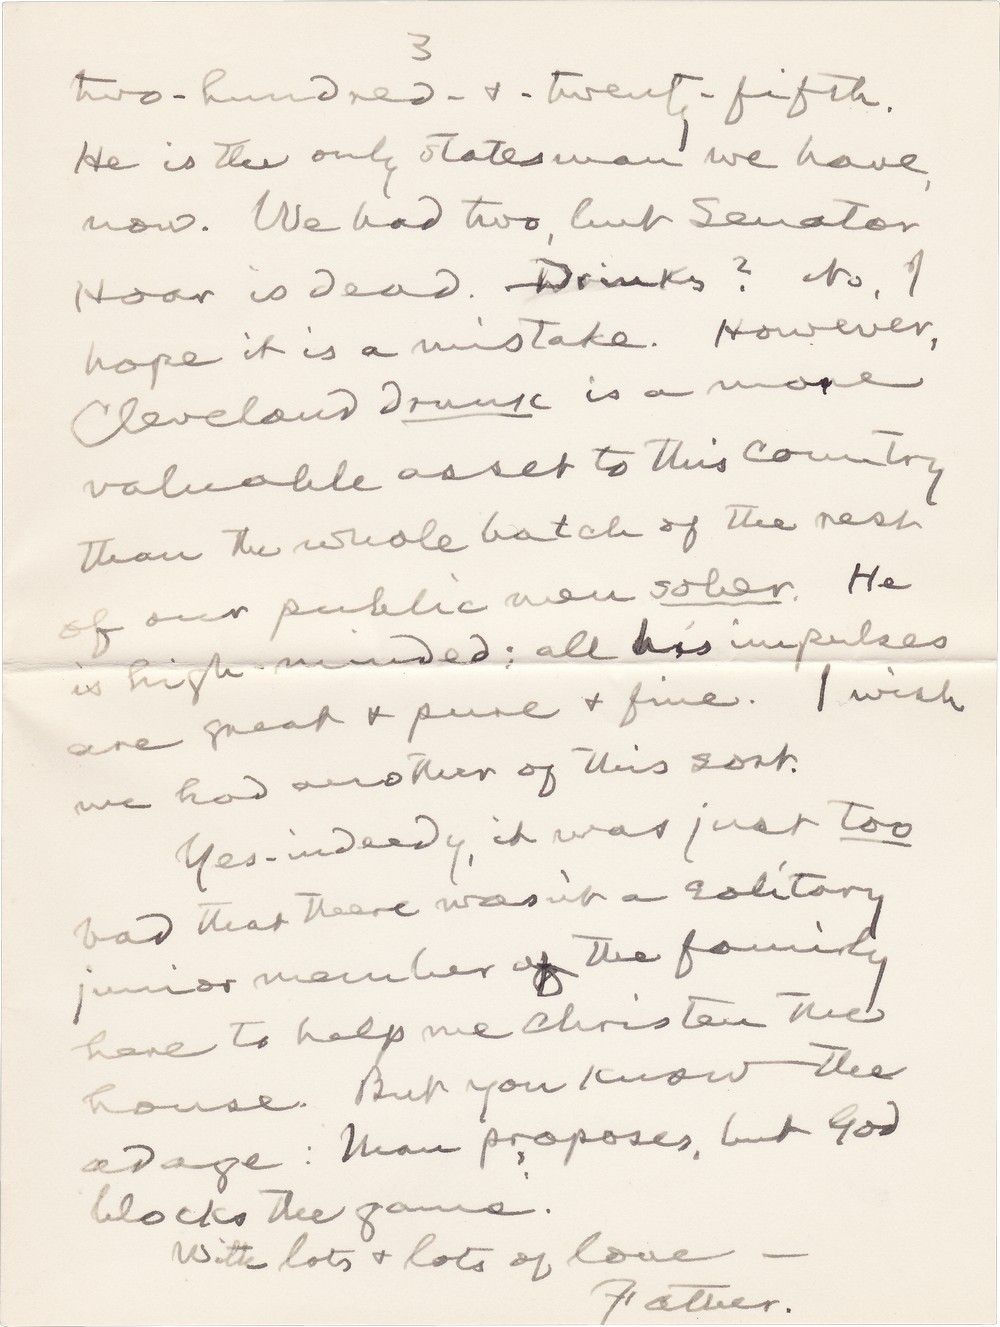 3
two-hundred-&-twenty-fifth.
He is the only statesman we have,
now. We had two, but Senator
Hoar is dead. Drinks? No, I
hope it is a mistake. However,
Cleveland drunk is a more
valuable asset to this country
than the whole batch of the rest
of our public men sober. He
is high-minded; all his impulses
are great & pure & fine. I wish
we had another of this sort.
Yes-indeedy, it was just too
bad that there wasn't a solitary
junior member of the family
here to help me christen the
house. But you know the
adage: Man proposes, but God
blocks the game.
With lots & lots of love —
Father.